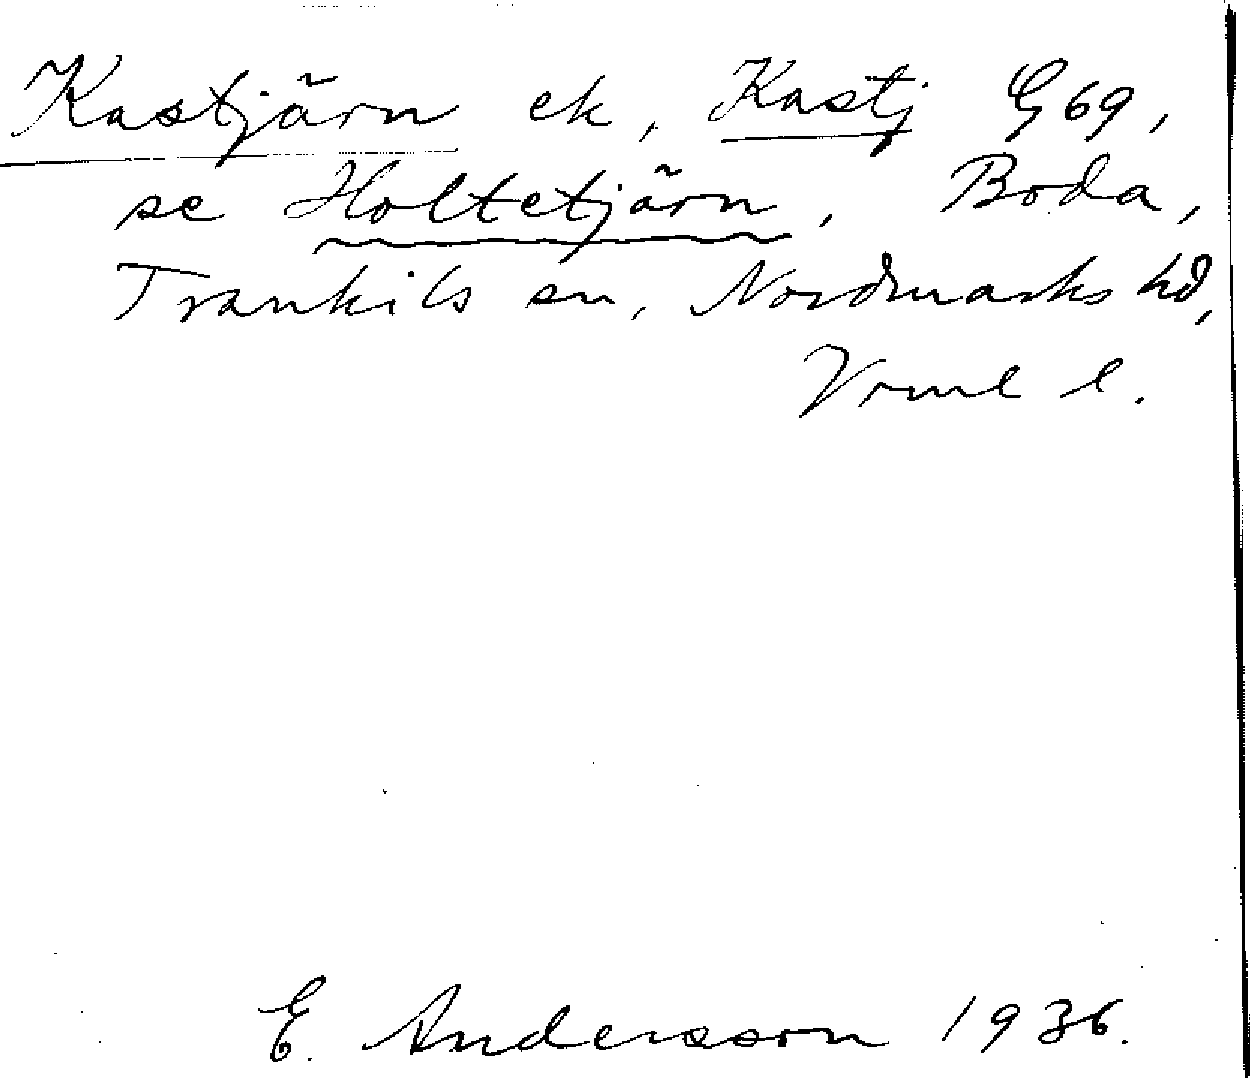 Kastjärn ek, Kastj G69,
se Holtetjärn, Boda,
Trankils sn, Nordmarks hd,
Vrml l.
E. Andersson 1936.